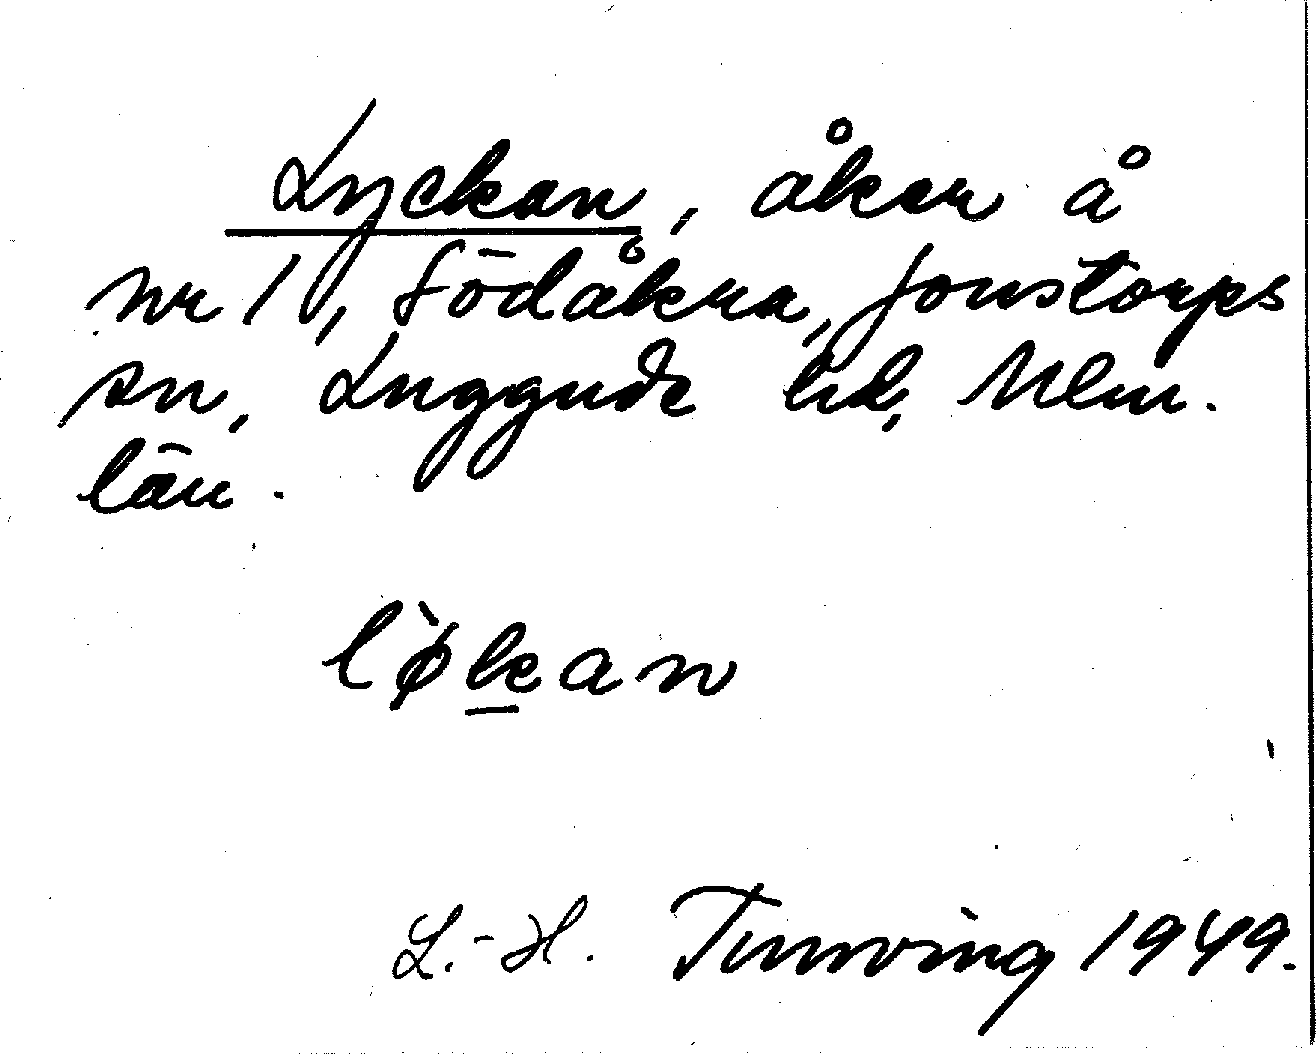 Lyckan, åker å
nr 1, Södåkra, Jonstorps
sn, Luggude hd, Mlm.
län.
l`økan
L.-H. Tunving 1949.